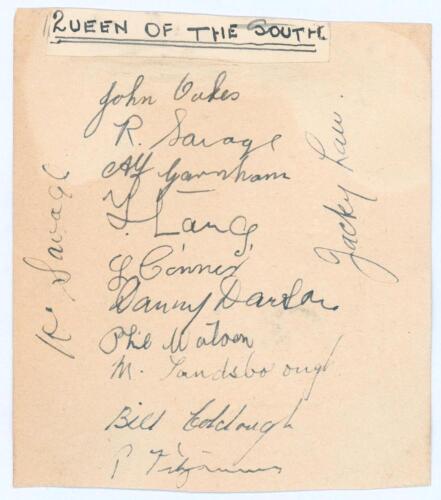 QUEEN OF THE SOUTH
John Oakes
R. Savage
Alf Garnham
T. Lang
J. Connor
Danny
Phil Watson
M. Landsborough
Bill
P. Fitzsimmons
R. Savage
Jacky Law.